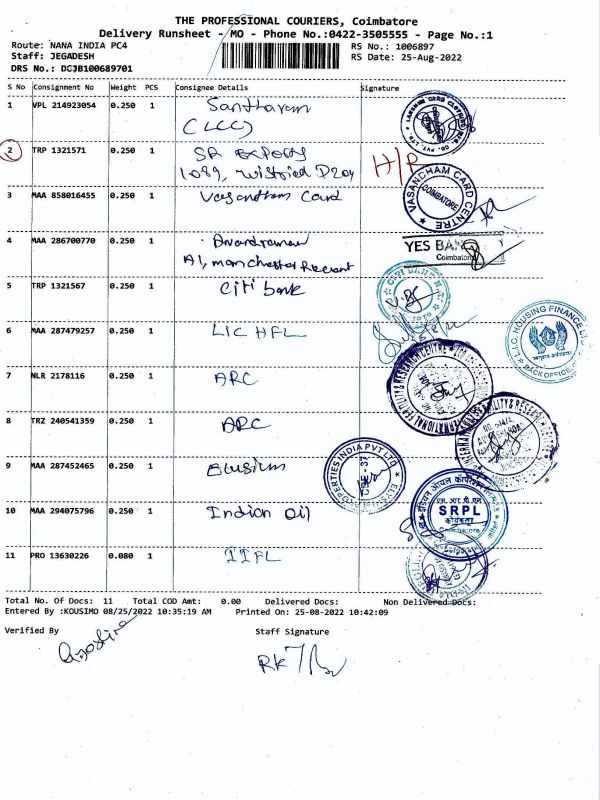 THE PROFESSIONAL COURIERS, Coimbatore
Delivery Runsheet - MO - Phone No.:0422-3505555 - Page No.:1
Route: NANA INDIA PC4 RS No.: 1006897
Staff: JEGADESH RS Date: 25-Aug-2022
DRS No.: DCJB100689701
S No Consignment No Weight PCS Consignee Details Signature
1 VPL 214923054 0.250 1 Santharam
(LCC)
2 TRP 1321571 0.250 1 SR Exports H/R
1089, D204
3 MAA 858016455 0.250 1 Vasantham Card
VASANCHAM CARD CENTRE
COIMBATORE
4 MAA 286700770 0.250 1
A1, Manchester Recent
YES BANK
Coimbatore
5 TRP 1321567 0.250 1 Citi bank
6 MAA 287479257 0.250 1 LIC HFL
L.I.C. HOUSING FINANCE LTD.
BACK OFFICE
7 NLR 2178116 0.250 1 ARC
8 TRZ 240541359 0.250 1 ARC
9 MAA 287452465 0.250 1 Elusium
PROPERTIES INDIA PVT LTD
10 MAA 294075796 0.250 1 Indian oil
SRPL
Coimbatore
11 PRO 13630226 0.080 1 IIFL
Total No. Of Docs: 11 Total COD Amt: 0.00 Delivered Docs: Non Delivered Docs:
Entered By :KOUSIMO 08/25/2022 10:35:19 AM Printed On: 25-08-2022 10:42:09
Verified By Staff Signature